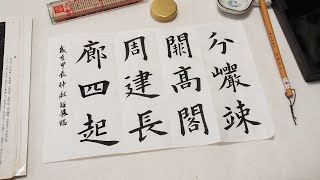 分巖竦
闢高閣
周建長
廊四起
歲在甲辰仲秋